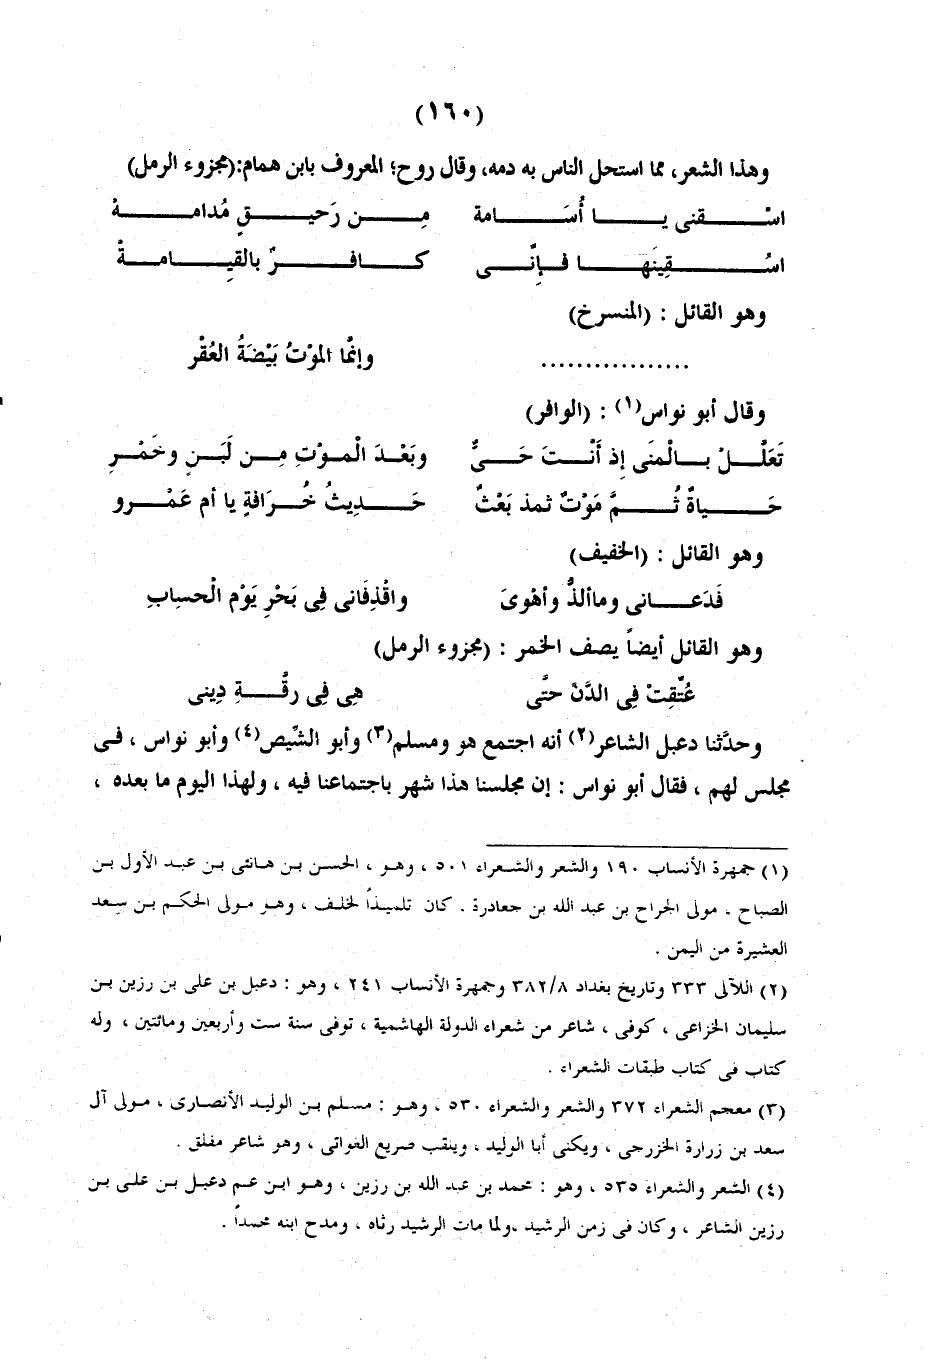 (١٦٠)
وهذا الشعر، مما استحل الناس به دمه، وقال روح؛ المعروف بابن همام:(مجزوء الرمل)
اسْقنى يا أُسَامة مِن رَحيقٍ مُدامةْ
اسْقِينَها فإنّى كافرٌ بالقِيامةْ
وهو القائل : (المنسرخ)
................. وإنمَّا الموْتُ بَيْضَةُ العُقْر
وقال أبو نواس(١) : (الوافر)
تَعَلْلْ بالْمنَى إذ أَنْتَ حَىٌّ وبَعْدَ الْموْتِ مِن لَبَنٍ وخَمْرِ
حَياةٌ ثُمَّ مَوْتٌ ثمذ بَعْثٌ حَديثُ خُرَافةٍ يا أم عَمْرو
وهو القائل : (الخفيف)
فَدَعانى وماألذُّ وأهْوىَ واقْذِفَانى فِى بَحْرِ يَوْم الْحسابِ
وهو القائل أيضاً يصف الخمر : (مجزوء الرمل)
عُتِّقتْ فِى الدَّنّ حتَّى هِى فِى رقَّةِ دِينى
وحدَّثنا دعبل الشاعر(٢) أنه اجتمع هو ومسلم(٣) وأبو الشِّيص(٤) وأبو نواس ، فى
مجلس لهم ، فقال أبو نواس : إن مجلسنا هذا شهر باجتماعنا فيه ، ولهذا اليوم ما بعده ،
(١) جمهرة الأنساب ١٩٠ والشعر والشعراء ٥٠١ ، وهو ، الحسن بن هانئى بن عبد الأول بن
الصباح . مولى الجراح بن عبد الله بن جعادرة . كان تلميذاً لخلف ، وهو مولى الحكم بن سعد
العشيرة من اليمن .
(٢) اللآلى ٣٣٣ وتاريخ بغداد ٣٨٢/٨ وجمهرة الأنساب ٢٤١ ، وهو : دعبل بن على بن رزين بن
سليمان الخزاعى ، كوفى ، شاعر من شعراء الدولة الهاشمية ، توفى سنة ست وأربعين ومائتين ، وله
كتاب فى كتاب طبقات الشعراء .
(٣) معجم الشعراء ٣٧٢ والشعر والشعراء ٥٣٠ ، وهو : مسلم بن الوليد الأنصارى ، مولى آل
سعد بن زرارة الخزرجى ، ويكنى أبا الوليد ، ويلقب صريع الغوانى ، وهو شاعر مفلق .
(٤) الشعر والشعراء ٥٣٥ ، وهو : محمد بن عبد الله بن رزين ، وهو ابن عم دعبل بن على بن
رزين الشاعر ، وكان فى زمن الرشيد .ولما مات الرشيد رثاه ، ومدح ابنه محمداً .